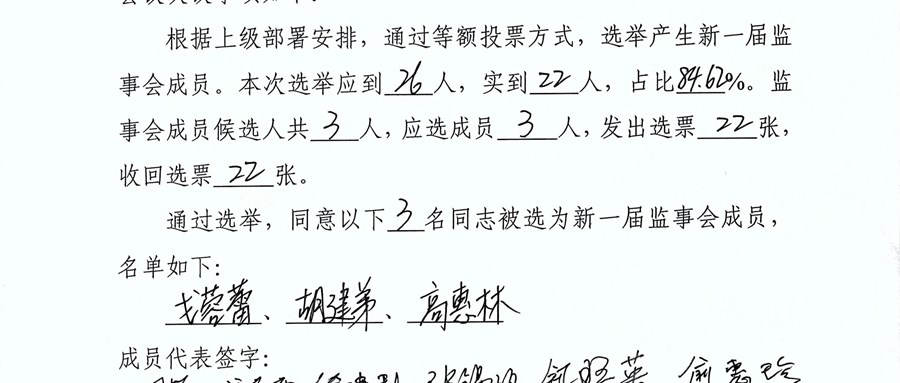 根据上级部署安排，通过等额投票方式，选举产生新一届监
事会成员。本次选举应到 26 人，实到 22 人，占比84.62%。监
事会成员候选人共 3 人，应选成员 3 人，发出选票 22 张，
收回选票 22 张。
通过选举，同意以下 3 名同志被选为新一届监事会成员，
名单如下：
戈蓉蕾、胡建弟、高惠林
成员代表签字：